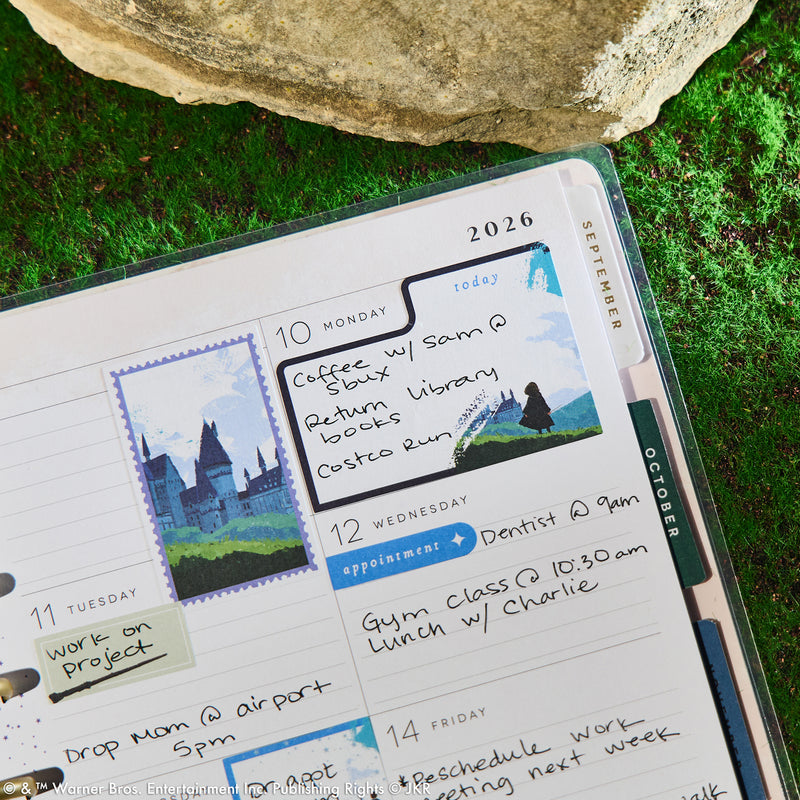 2026
SEPTEMBER
OCTOBER
10 MONDAY
today
Coffee w/ Sam @
Sbux
Return library
books
Costco Run
11 TUESDAY
Work on
project
Drop Mom @ airport
5pm
12 WEDNESDAY
appointment
Dentist @ 9am
Gym Class @ 10:30 am
Lunch w/ Charlie
Dr. appt
14 FRIDAY
*Reschedule work
meeting next week
® & ™ Warner Bros. Entertainment Inc. Publishing Rights © JKR